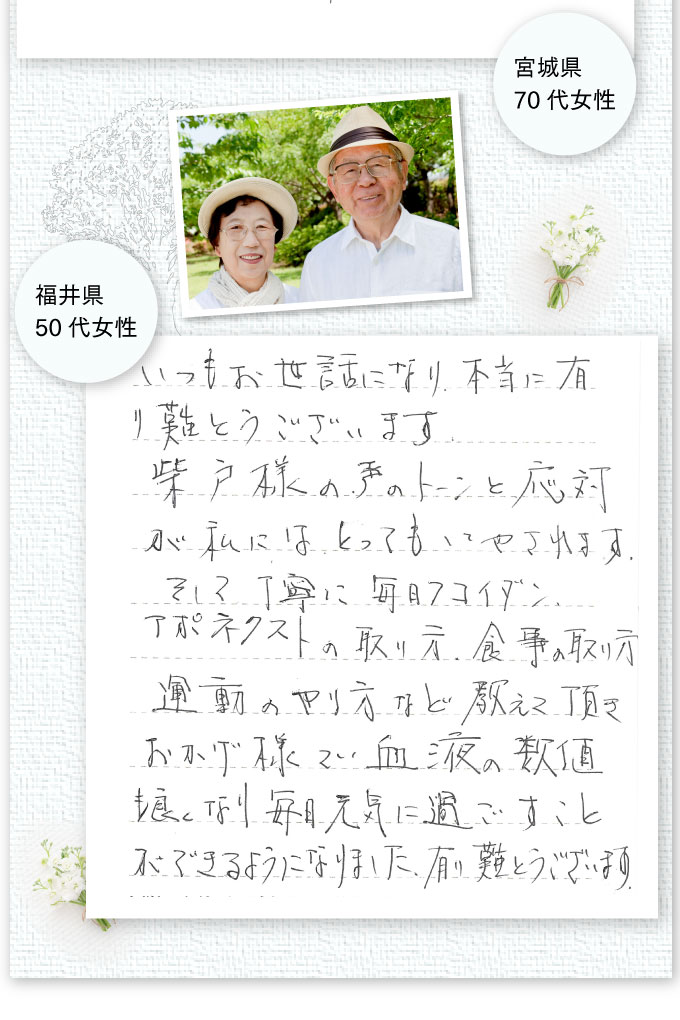 宮城県
70代女性
福井県
50代女性
いつもお世話になり、本当に有
り難とうございます。
柴戸様の声のトーンと応対
が私には、とってもいやされます。
そして丁寧に毎日フコイダン、
アポネクストの取り方、食事の取り方
運動のやり方など教えて頂き
おかげ様でい血液の数値
も良くなり毎日元気に過ごすこと
ができるようになりました。有り難とうございます。